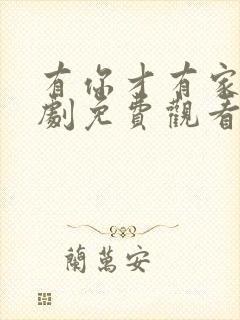 有你才有家
劇免費觀看
蘭萬安